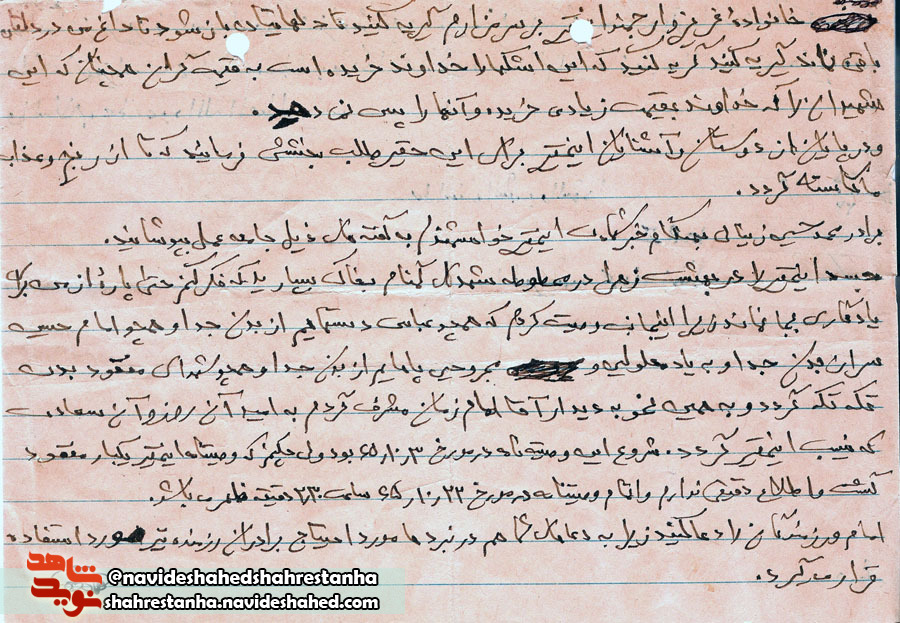 خانواده عزیز و ارجمند اینحقیر بر سر مزارم گریه کنید تا دلهایتان شود تا داغی در دلتان
باقی نماند گریه کنید گریه کنید که این اشکها را خداوند خریده است به قیمت گران همچنان که این
شهیدان را که خداوند بقیمت زیادی خریده و آنها را پس نمی دهد.
و در پایان از دوستان و آشنایان اینحقیر برای این حقیر طلب بخشش فرمایند که تا از رنج و عذاب
ما کاسته گردد.
برادر محمد حسین زینالی بهنگام خبر شهادت اینحقیر خواهشمندم به گفته های ذیل جامه عمل بپوشانید.
جسد اینحقیر را در بهشت زهرا در محوطه شهدای گمنام بخاک بسپارید که فکر کنم حتی پاره از من برای
یادگاری بجا نماند زیرا اینجانب وصیت کردم که همچو عباس دستهایم از بدن جدا و همچو امام حسین
سر از بدن جدا و به یاد معلولین و مجروحین پاهایم از بدن جدا و همچو شهدای مفقود بدن
تکه تکه گردد و به همین نحو به دیدار آقا امام زمان مشرف گردم به امید آن روز و آن سعادت
که نصیب اینحقیر گردد. شروع این وصیتنامه در مورخ ۶۵/۱۰/۳ بود ولی چکنم که وصیتنامه اینحقیر یکبار مفقود
گشت و اطلاع دقیقی ندارم و اتمام وصیتنامه در مورخ ۶۵/۱۰/۲۲ ساعت ۲/۳۰ دقیقه ظهر می باشد.
امام و رزمندگان را دعا کنید زیرا به دعاهای شما هم در نبردها مورد احتیاج برادران رزمنده نیز مورد استفاده
قرار می گیرد.
نوید شاهد
@navideshahedshahrestanha
shahrestanha.navideshahed.com